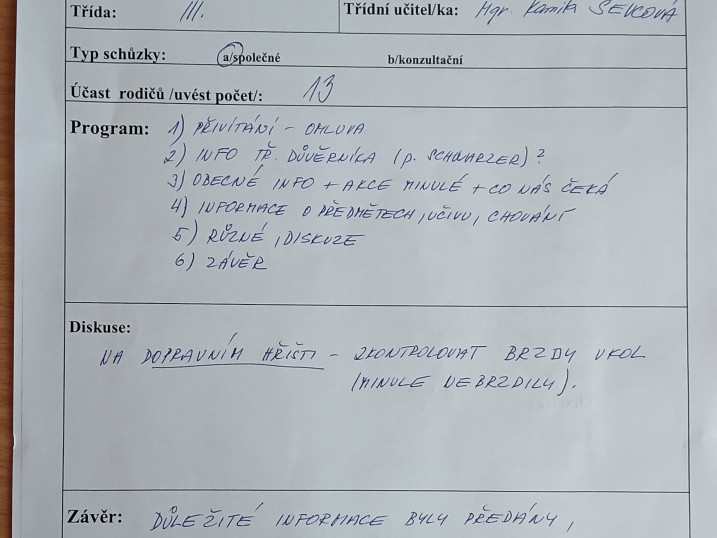 Třída: III. Třídní učitel/ka: Mgr. Kamila ŠEVCOVÁ
Typ schůzky: a/společné b/konzultační
Účast rodičů /uvést počet/: 13
Program: 1) PŘIVÍTÁNÍ - OMLUVA
2) INFO TŘ. DŮVĚRNÍKA (p. SCHWARZER)?
3) OBECNÉ INFO + AKCE MINULÉ + CO NÁS ČEKÁ
4) INFORMACE O PŘEDMĚTECH, UČIVU, CHOVÁNÍ
5) RŮZNÉ, DISKUZE
6) ZÁVĚR
Diskuse:
NA DOPRAVNÍM HŘIŠTI - ZKONTROLOVAT BRZDY U KOL
(MINULE NEBRZDILY).
Závěr: DŮLEŽITÉ INFORMACE BYLY PŘEDÁNY,